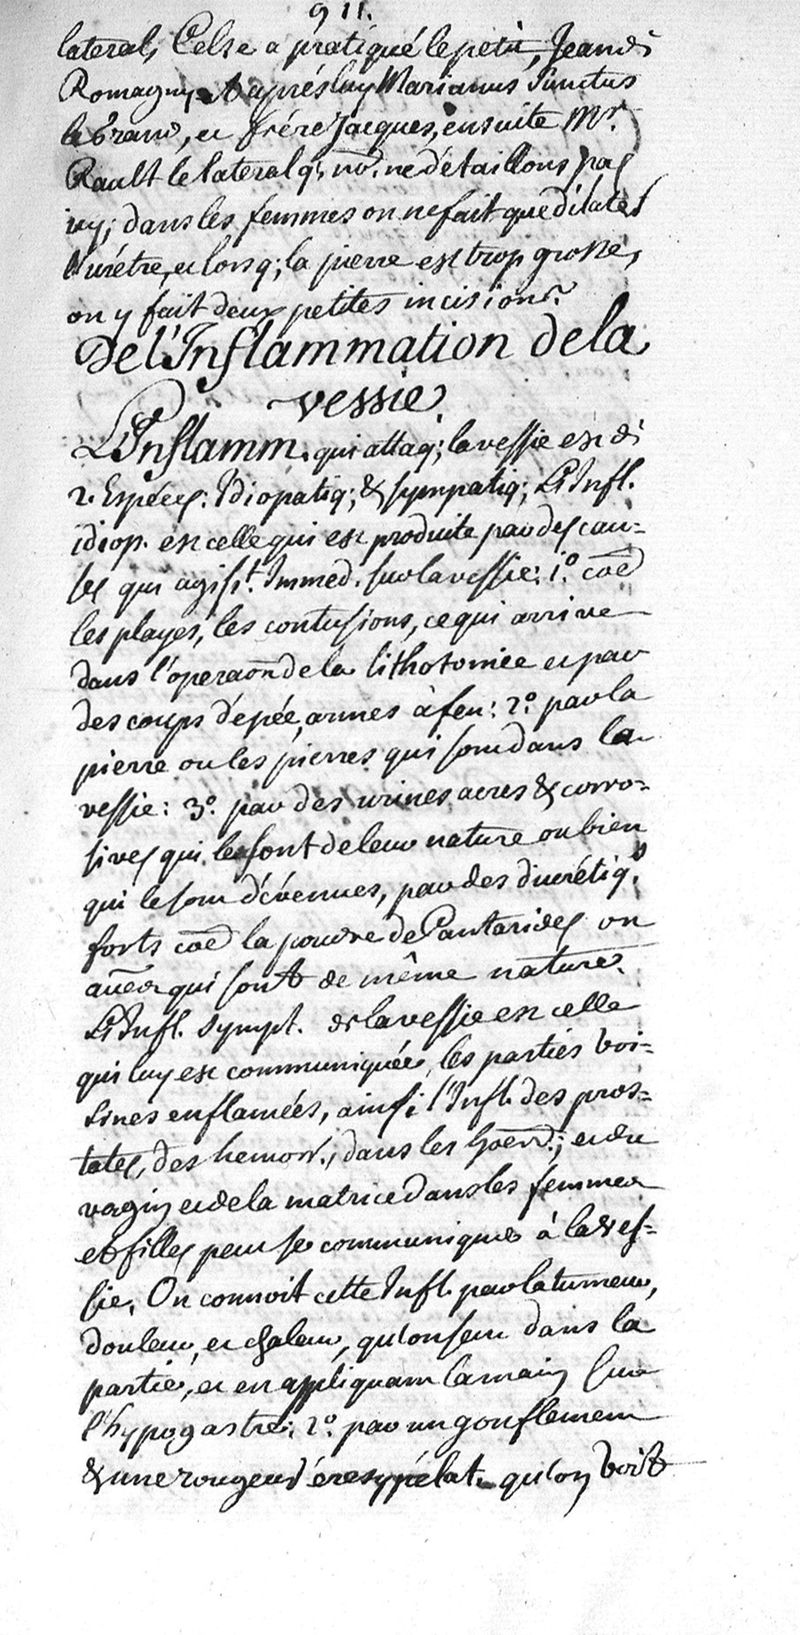 911.
lateral, Celse a pratiqué le petit, Jean de
Romagny et aprés luy Marianus Sunctus
le Grand, et frére Jacques, ensuite Mr.
Rault le lateral q; no. ne détaillons pas
icy; dans les femmes on ne fait que dilater
l'urétre, et lorsq; la pierre est trop grosse,
on y fait deux petites incisions.
De l'Inflammation de la
vessie.
L'Inflamm. qui attaq; la vessie est de
2. Espéces: Idiopatiq; & sympatiq; L'Infl.
idiop. est celle qui est produite par des cau=
ses qui agiss.t Immed. sur la vessie: 1.º coe
les playes, les contusions, ce qui arrive
dans l'operaon de la lithotomiee et par
des coups d'epée, armes à feu: 2.º par la
pierre ou les pierres qui sont dans la
vessie: 3.º par des urines acres & corro=
sives qui le sont de leur nature ou bien
qui le sont dévenues, par des diurétiq.s
forts coe la poudre de Cantarides ou
autres qui sont de même nature.
L'Infl. sympt. de la vessie est celle
qui luy est communiquée, les parties voi=
sines enflamées, ainsi; l'Infl. des pros=
tates, des hemorr., dans les hoes; et du
vagin et de la matrice dans les femmes
et filles peut se communiquer à la ves=
sie. On connoit cette Infl. par la tumeur,
douleur, et chaleur, qu'on sent dans la
partie, et en appliquant la main sur
l'hypogastre; 2.º par un gonflement
& une rougeur éresypélat. qu'on voit